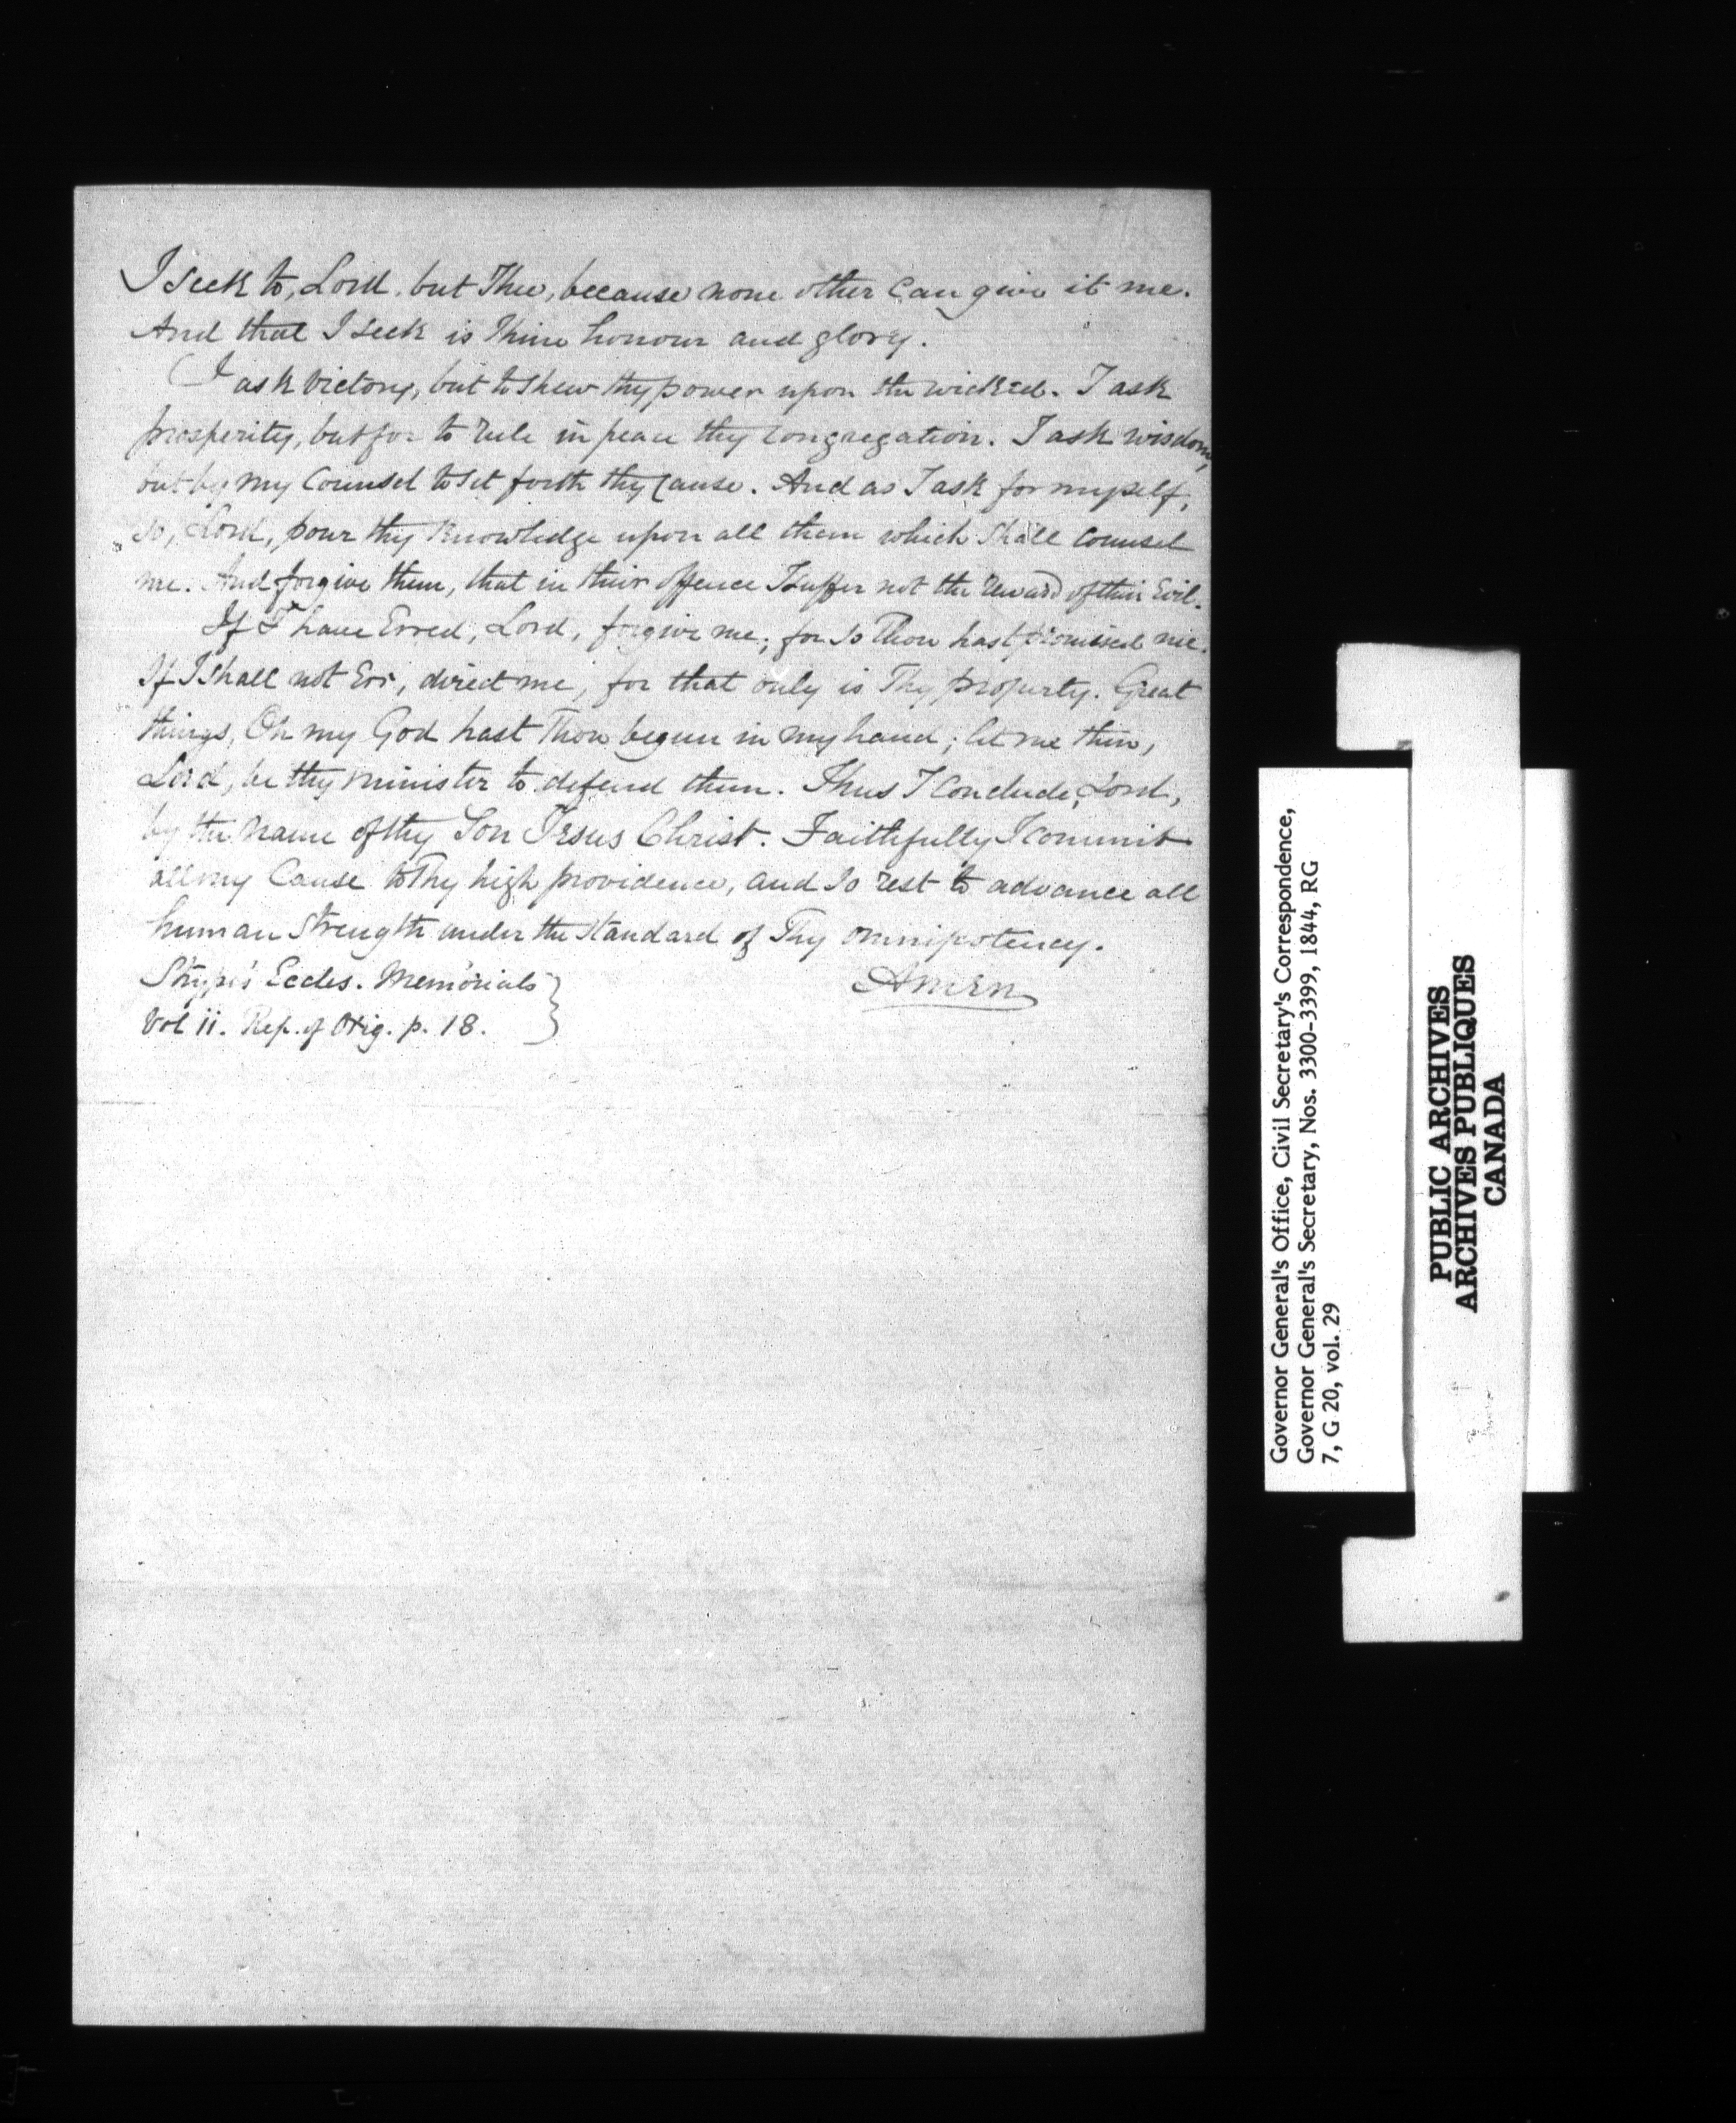 I seek to, Lord, but Thee, because none other can give it me.
And that I seek is Thine honour and glory.
I ask victory, but to shew thy power upon the wicked. I ask
prosperity, but for to rule in peace thy Congregation. I ask wisdom,
but by my Counsel to set forth thy Cause. And as I ask for myself,
so, Lord, pour thy Knowledge upon all them which shall counsel
me. And forgive them, that in their offence I suffer not the reward of their Evil.
If I have Erred, Lord, forgive me; for so Thou hast promised me.
If I shall not Err, direct me, for that only is Thy property. Great
things, Oh my God hast Thou begun in my hand; let me then,
Lord, be thy minister to defend them. Thus I conclude, Lord,
by the name of thy Son Jesus Christ. Faithfully I commit
all my Cause to Thy high providence, and so rest to advance all
human strength under the standard of Thy omnipotency.
Amen
Strype's Eccles. Memorials
Vol ii. Rep. of Orig. p. 18.
Governor General's Office, Civil Secretary's Correspondence,
Governor General's Secretary, Nos. 3300-3399, 1844, RG
7, G 20, vol. 29
PUBLIC ARCHIVES
ARCHIVES PUBLIQUES
CANADA